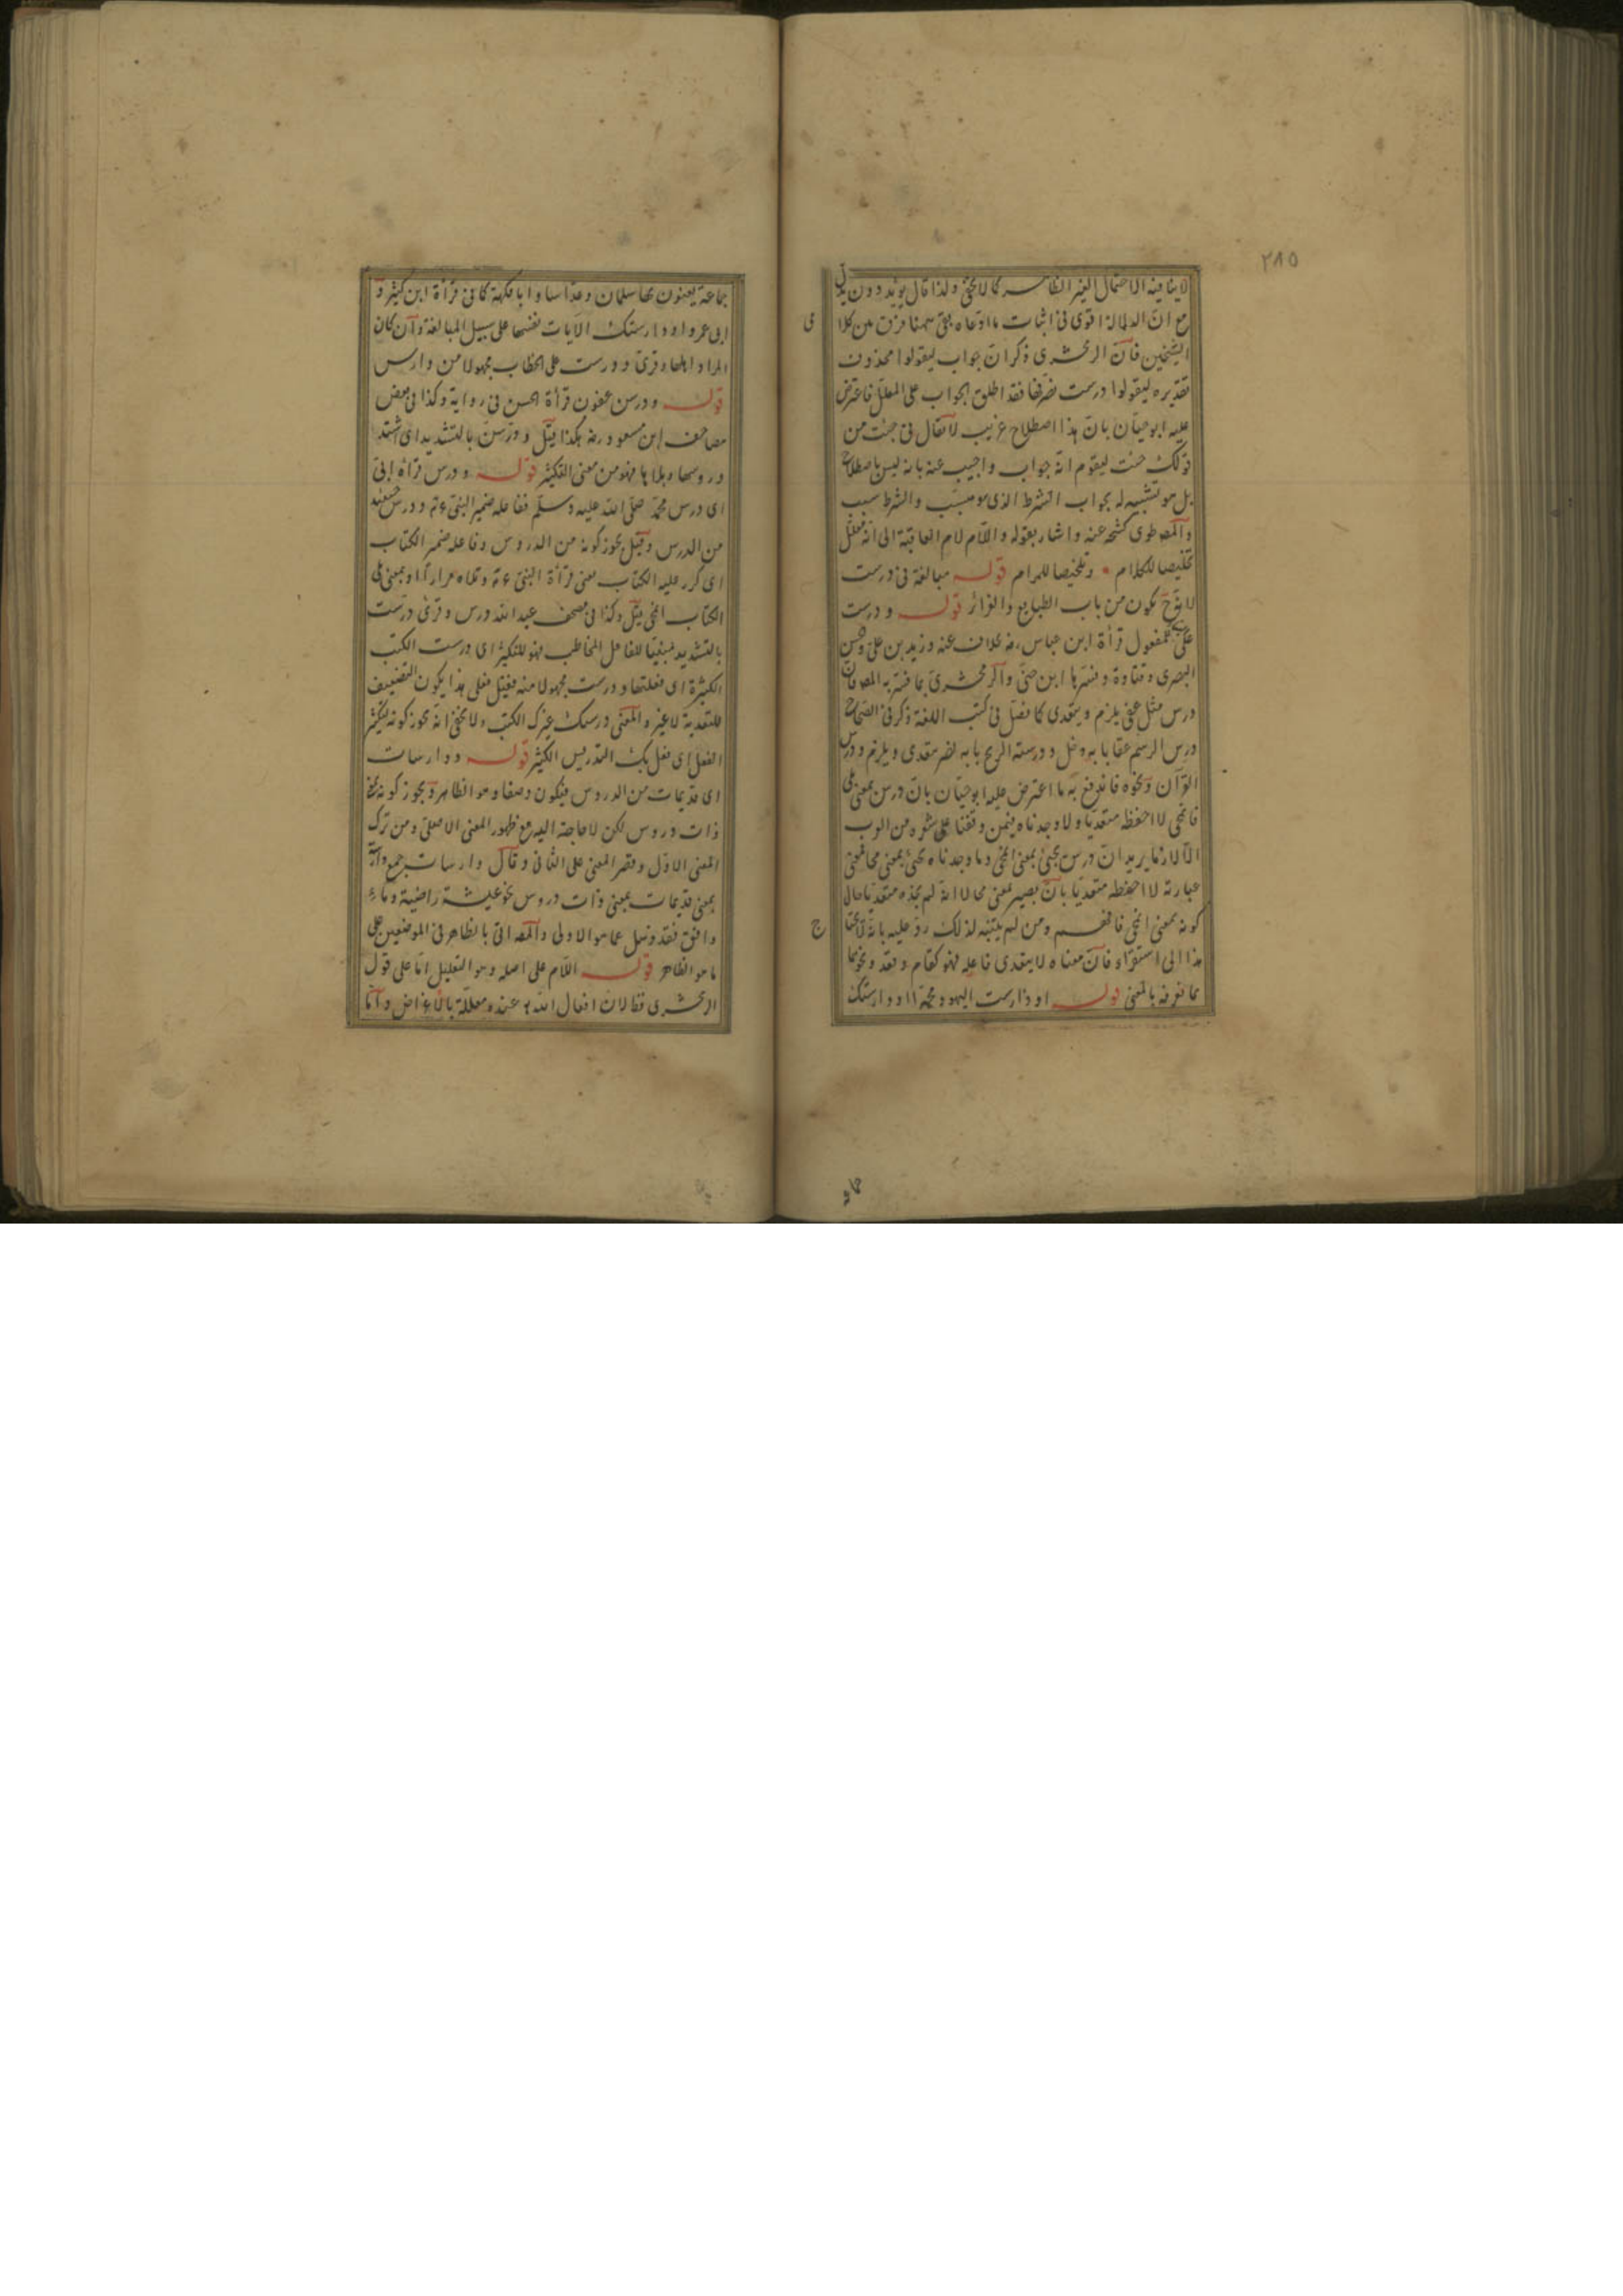 ٢٨٥
لا ينافيه الاحتمال الغير الظاهر كما لا يخفى ولذا قال يؤيد دون يدل
مع ان الدلالة اقوى فى اثبات ما ادعاه بقى ههنا فرق بين كلا
مى
الشيخين فان الزمخشرى ذكر ان جواب ليقولوا محذوف
تقديره ليقولوا درست نصرفها فقد اطلق الجواب على المعلل فاعترض
عليه ابو حيان بان هذا اصطلاح غريب لا يقال فى جئت من
قولك جئت لتقوم انه جواب واجيب عنه بانه ليس باصطلاح
بل هو تشبيه له بجواب الشرط الذى هو مسبب والشرط سبب
والمص طوى كشحه عنه واشار بقوله واللام لام العاقبة الى انه معلل
تخليصا للكلام وتلخيصا للمرام قوله مبالغة فى درست
لانه ح يكون من باب الطبايع والغرائز قوله ودرست
على المفعول قرأة ابن عباس رضه بخلاف عنه وزيد بن على والحسن
البصرى وقتادة وفسرها ابن جنى والزمخشرى بما فسر به المص فان
درس مثل عفى يلزم ويتعدى كما فصل فى كتب اللغة ذكر فى الصحاح
درس الرسم عفا بابه دخل ودرسته الريح بابه نصر متعدى ويلزم ودرس
القرآن ونحوه فاندفع به ما اعترض عليه ابو حيان بان درس بمعنى بلى
فانمحى لا احفظه متعديا ولا وجدناه فيمن وقفنا على شعره من العرب
الا لازما يريد ان درس يجئ بمعنى انمحى وما وجدناه يجئ بمعنى محا فمعنى
عبارته لا احفظه متعديا بان يصير بمعنى محا لا انه لم يجده متعديا حال
كونه بمعنى انمحى فافهم ومن لم يتنبه لذلك رد عليه بانه لا يحتاج
هذا الى استقراء فان معناه لا يتعدى فاعله فهو كقام وقعد ونحوهما
مما نعرفه بالمعنى قوله او دارست اليهود محمدا او دارستك
جماعة يعنون بها سلمان وعداسا وابا فكيهة كما فى قرأة ابن كثير و
ابى عمرو او دارستك الآيات نفسها على سبيل المبالغة وان كان
المراد اهلها وقرئ ودورست على الخطاب مجهولا من دارس
قوله ودرسن عفون قرأة الحسن فى رواية وكذا فى بعض
مصاحف ابن مسعود رضه هكذا قيل ودرسن بالتشديد اى اشتد
دروسها وبلاها فهو من معنى التكثير قوله ودرس قرأة ابى
اى درس محمد صلى الله عليه وسلم ففاعله ضمير النبى ع م ودرس حينئذ
من الدرس وقيل يجوز كونه من الدروس وفاعله ضمير الكتاب
اى كرر عليه الكتاب يعنى قرأة النبى ع م وتلاه مرارا او بمعنى بلى
الكتاب انمحى قيل وكذا فى مصحف عبد الله درس وقرئ درست
بالتشديد مبنيا للفاعل المخاطب فهو للتكثير اى درست الكتب
الكثيرة اى فعلتها ودرست مجهولا منه فقيل فعلى هذا يكون التضعيف
للتعدية لا غير والمعنى درسك غيرك الكتب ولا يخفى انه يجوز كونه لتكثير
الفعل اى فعل بك التدريس الكثير قوله ودارسات
اى قديمات من الدروس فيكون وصفا وهو الظاهر ويجوز كونه بمعنى
ذات دروس لكن لا حاجة اليه مع ظهور المعنى الاصلى ومن ترك
المعنى الاول وقصر المعنى على الثانى وقال دارسات جمع دارسة
بمعنى قديمات بمعنى ذات دروس نحو عيشة راضية وماء
دافق فقد ذهل عما هو الاولى والمص اتى بالظاهر فى الموضعين على
ما هو الظاهر قوله اللام على اصله وهو التعليل اما على قول
الزمخشرى فظ لان افعال الله ت عنده معللة بالاغراض واما